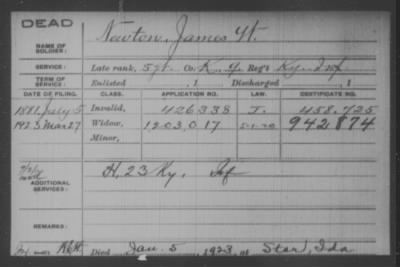 DEAD
NAME OF SOLDIER: Newton, James H.
SERVICE: Late rank, Sgt. Co. K, 9 Reg't Ky. Inf.
TERM OF SERVICE: Enlisted , 1 Discharged , 1
DATE OF FILING. CLASS. APPLICATION NO. LAW. CERTIFICATE NO.
1881, July 5 Invalid, 426338 J. 458.725
1923 Mar 27 Widow, 1203017 5-1-20 942874
Minor,
ADDITIONAL SERVICES: H, 23 Ky. Inf
REMARKS:
Died Jan. 5, 1923, at Star, Ida